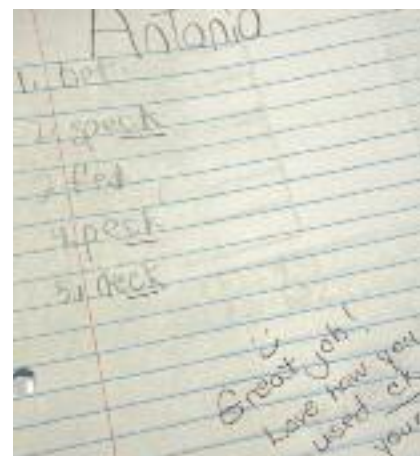 Antonio
1. bet
2. speck
3. fed
4. peck
5. deck
Great job!
Love how you
used ck
your